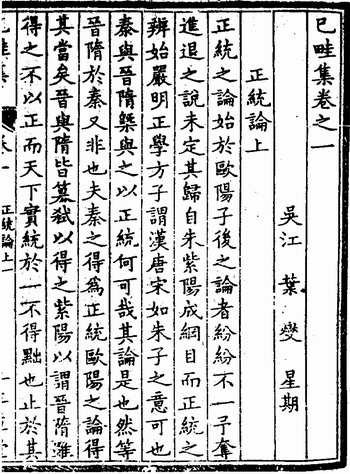 已畦集卷之一
吳江 葉燮 星期
正統論上
正統之論始於歐陽子後之論者紛紛不一予奪
進退之說未定其歸自朱紫陽成綱目而正統之
辨始嚴明正學方子謂漢唐宋如朱子之意可也
秦與晉隋槩與之以正統何可哉其論是也然等
晉隋於秦又非也夫秦之得為正統歐陽之論得
其當矣晉與隋皆篡弑以得之紫陽以謂晉隋雖
得之不以正而天下實統於一不得黜也止於其
正統論上一